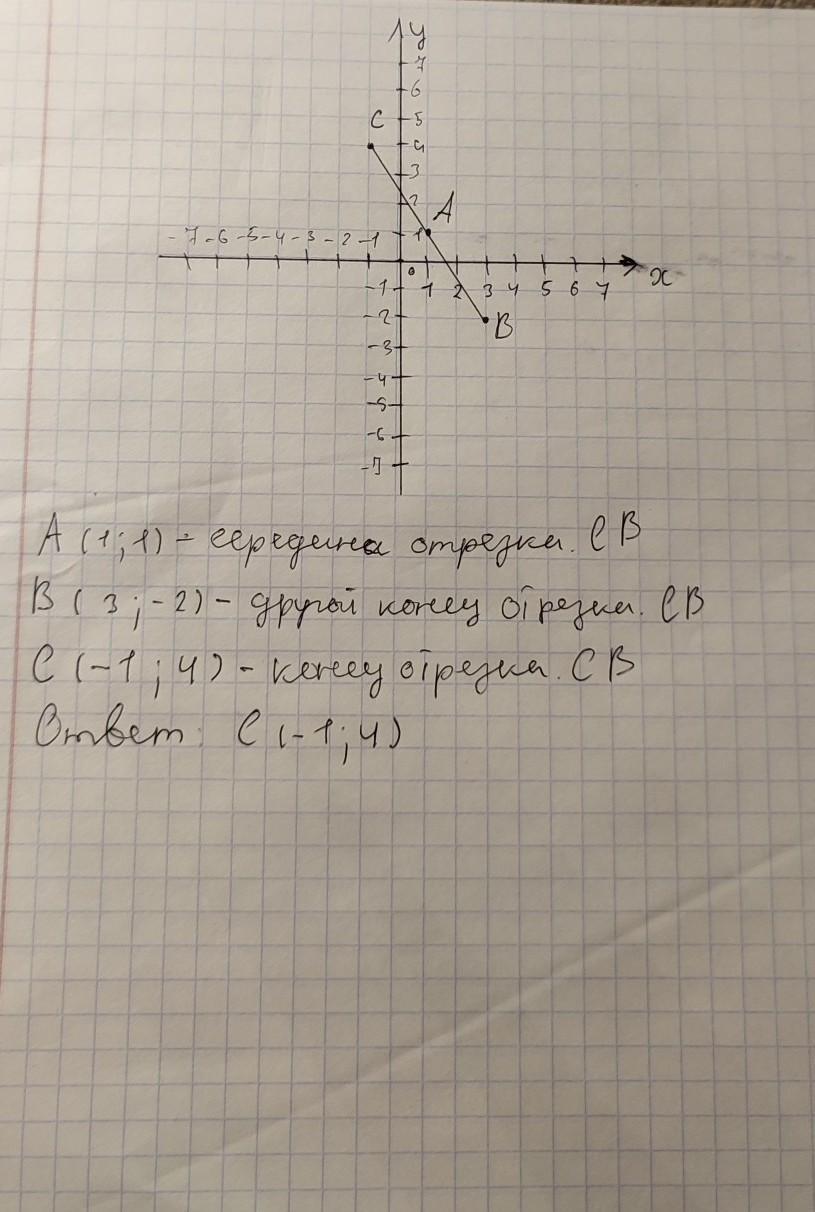 y
7
6
C 5
4
3
2 A
-7 -6 -5 -4 -3 -2 -1 1
0 x
-1 1 2 3 4 5 6 7
-2 B
-3
-4
-5
-6
-7
A (1;1) - середина отрезка. CB
B (3;-2) - другой конец отрезка. CB
C (-1;4) - конец отрезка. CB
Ответ: C (-1;4)